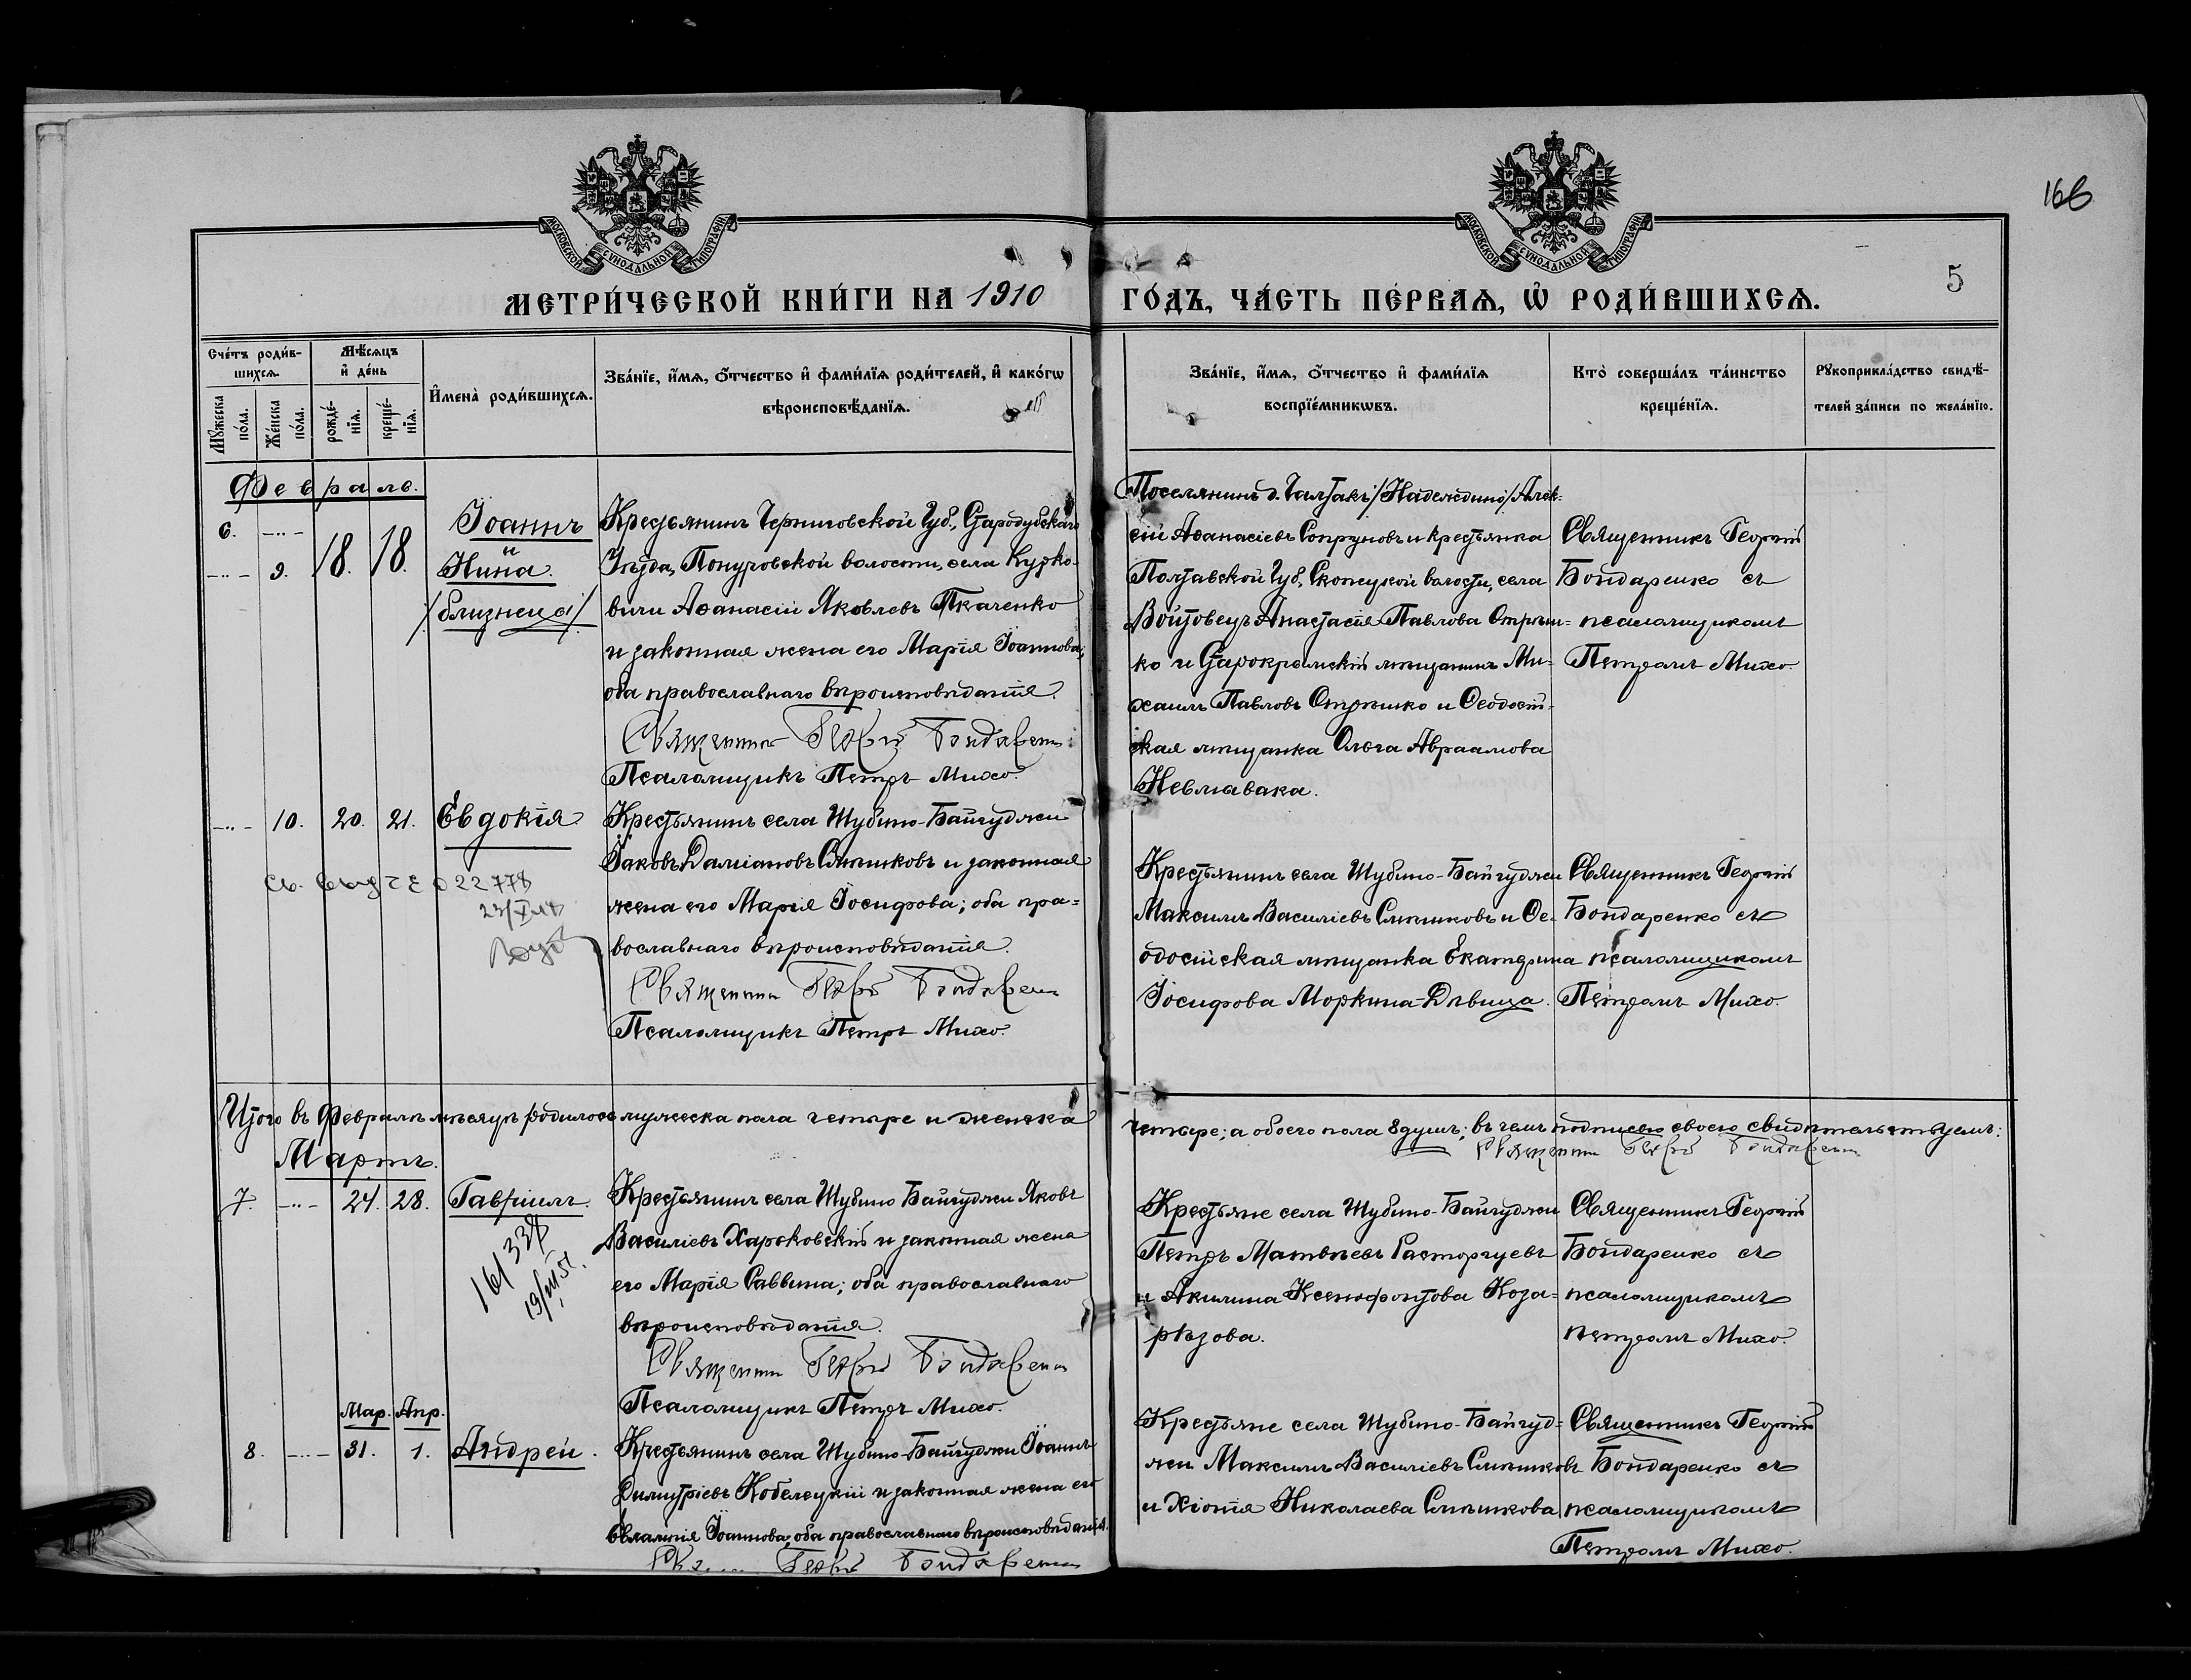 166
МОСКОВСКОЙ СУНОДАЛЬНОЙ ТИПОГРАФІИ
МОСКОВСКОЙ СУНОДАЛЬНОЙ ТИПОГРАФІИ
МЕТРИ́ЧЕСКОЙ КНИ́ГИ НА 1910
ГО́ДЪ, ЧА́СТЬ ПЕ́РВАѦ, Ѽ РОДИ́ВШИХСѦ.
5
Сче́тъ роди́в-
шихсѧ.
Мѣ́сѧцъ
и҆ де́нь
Мꙋ́жеска
по́ла.
Же́нска
по́ла.
рожде́-
нїѧ.
креще́-
нїѧ.
И҆мена̀ роди́вшихсѧ.
Зва́нїе, и҆́мѧ, ѻ҆́тчество и҆ фами́лїѧ роди́телей, и҆ како́гѡ
вѣроисповѣ́данїѧ.
Зва́нїе, и҆́мѧ, ѻ҆́тчество и҆ фами́лїѧ
воспрїе́мникѡвъ.
Кто̀ соверша́лъ та́инство
креще́нїѧ.
Рꙋкоприкла́дство свидѣ́-
телей за́писи по жела́нїю.
Февраль.
6. -..-
-..- 9.
18. 18.
Іоаннъ
и
Нина
/близнецы/
Крестьянинъ Черниговской Губ., Стародубскаго
Уѣзда, Понуровской волости, села Курко-
вичи Аѳанасій Яковлевъ Ткаченко
и законная жена его Марія Іоаннова;
оба православнаго вѣроисповѣданія.
Священникъ Георгій Бондаренко
Псаломщикъ Петръ Михо.
Поселянинъ д. Чалтакъ /Надеждино/ Алек-
сій Аѳанасіевъ Сопруновъ и крестьянка
Полтавской Губ., волости, села
Войтовецъ Анастасія Павлова Отрѣш-
ко и Старокрымскій мѣщанинъ Ми-
хаилъ Павловъ Отрѣшко и Ѳеодосій-
ская мѣщанка Ольга Авраамова
Священникъ Георгій
Бондаренко съ
псаломщикомъ
Петромъ Михо.
-..- 10. 20. 21. Евдокія
Крестьянинъ села Шубино-Байгуджи
Іаковъ Даміановъ Слѣпиковъ и законная
жена его Марія Іосифова; оба пра-
вославнаго вѣроисповѣданія.
Священникъ Георгій Бондаренко
Псаломщикъ Петръ Михо.
022778
Крестьянинъ села Шубино-Байгуджи
Максимъ Василіевъ Слѣпиковъ и Ѳе-
одосійская мѣщанка Екатерина
Іосифова Моркина-Дѣвица.
Священникъ Георгій
Бондаренко съ
псаломщикомъ
Петромъ Михо.
Итого въ Февралѣ мѣсяцѣ родилось мужеска пола четыре и женска
четыре; а обоего пола 8 душъ; въ чемъ подписью своею свидѣтельствуемъ:
Священникъ Георгій Бондаренко
Мартъ.
7. -..- 24. 28. Гавріилъ.
16/338
Крестьянинъ села Шубино Байгуджи Яковъ
Василіевъ Харьковскій и законная жена
его Марія Саввина; оба православнаго
вѣроисповѣданія.
Священникъ Георгій Бондаренко
Псаломщикъ Петръ Михо.
Крестьяне села Шубино-Байгуджи
Петръ Матвѣевъ Расторгуевъ
и Акилина Ксенофонтова Коза-
рѣзова.
Священникъ Георгій
Бондаренко съ
псаломщикомъ
Петромъ Михо.
Мар. Апр.
8. -..- 31. 1. Андрей.
Крестьянинъ села Шубино-Байгуджи Іоаннъ
Димитріевъ Кобелецкій и законная жена его
Евлампія Іоаннова; оба православнаго вѣроисповѣданія.
Георгій Бондаренко
Крестьяне села Шубино-Байгуд-
жи Максимъ Василіевъ Слѣпиковъ
и Хіонія Николаева Слѣпикова
Священникъ Георгій
Бондаренко съ
псаломщикомъ
Петромъ Михо.